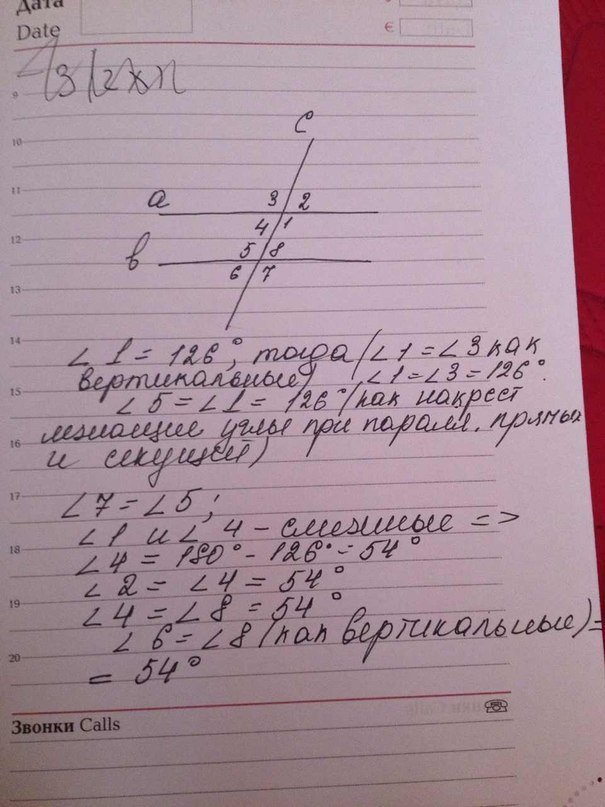 Дата
Date
€
9
10
11
12
13
14
15
16
17
18
19
20
c
a
3 2
4 1
b
5 8
6 7
∠1 = 126°, тогда (∠1 = ∠3 как
вертикальные) ∠1 = ∠3 = 126°.
∠5 = ∠1 = 126° (как накрест
лежащие углы при паралл. прямых
и секущей)
∠7 = ∠5;
∠1 и ∠4 - смежные =>
∠4 = 180° - 126° = 54°
∠2 = ∠4 = 54°
∠4 = ∠8 = 54°
∠6 = ∠8 (как вертикальные) =
= 54°
Звонки Calls